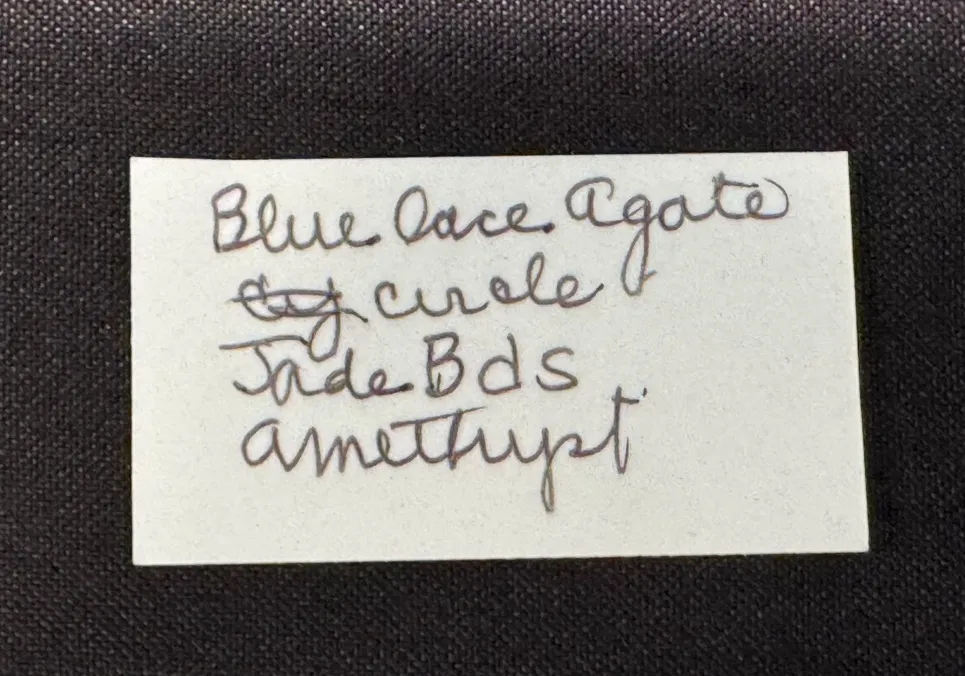 Blue Lace Agate
circle
Jade Bds
amethyst